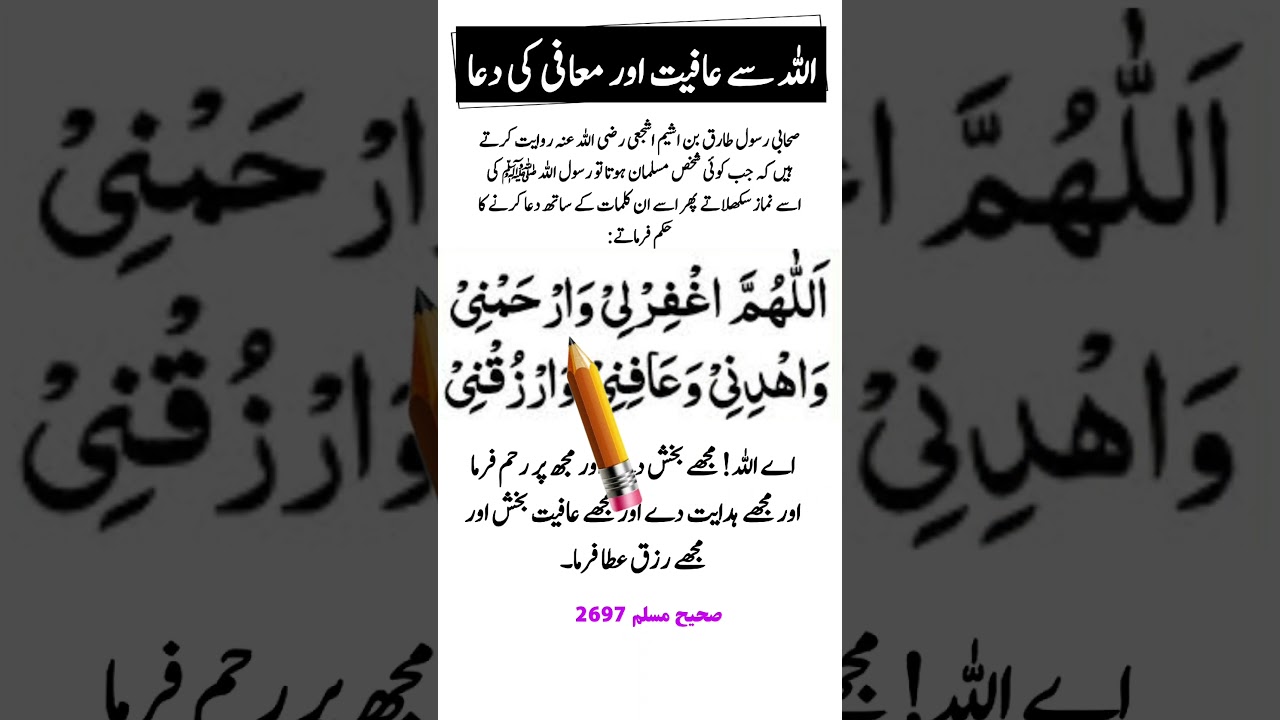 اللہ سے عافیت اور معافی کی دعا
صحابی رسول طارق بن اشیم اشجعی رضی اللہ عنہ روایت کرتے
ہیں کہ جب کوئی شخص مسلمان ہوتا تو رسول اللہ ﷺ کی
اسے نماز سکھلاتے پھر اسے ان کلمات کے ساتھ دعا کرنے کا
حکم فرماتے:
اَللّٰهُمَّ اغْفِرْ لِيْ وَارْحَمْنِيْ
وَاهْدِنِيْ وَعَافِنِيْ وَارْزُقْنِيْ
اے اللہ! مجھے بخش اور مجھ پر رحم فرما
اور مجھے ہدایت دے اور مجھے عافیت بخش اور
مجھے رزق عطا فرما۔
صحیح مسلم 2697